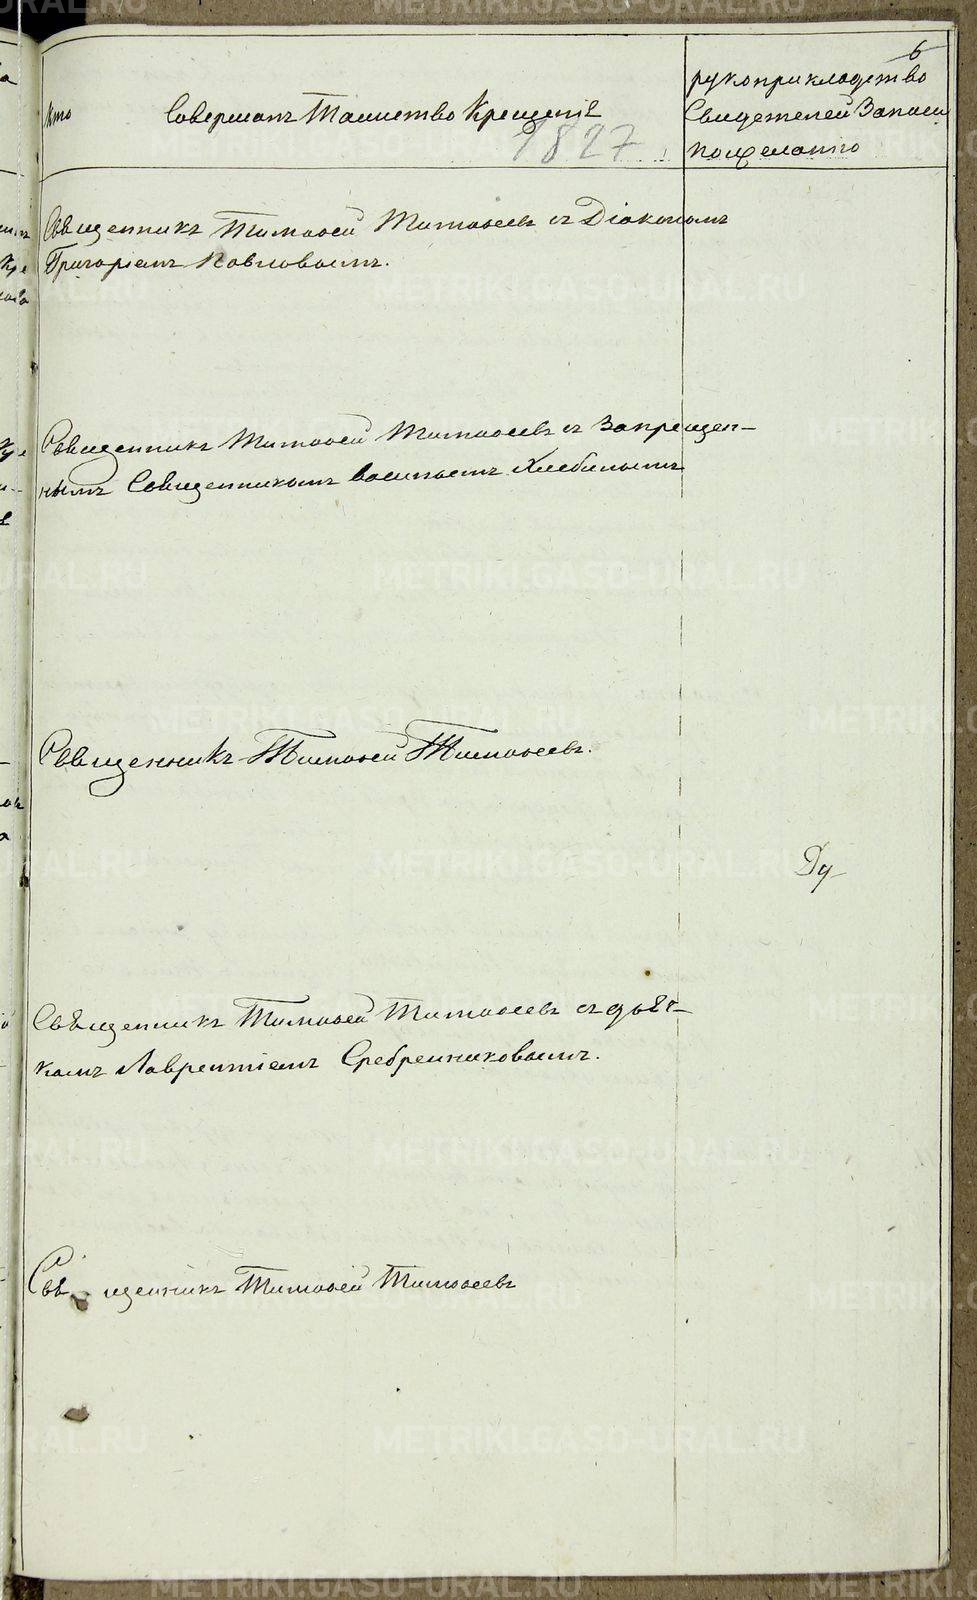 6
Кто Совершалъ Таинство Крещенія
рукоприкладство
Свидетелей Записи
по желанію
1827
Священникъ Тимофей Тимофеевъ съ Діакономъ
Григоріемъ Павловымъ.
Священникъ Тимофей Тимофеевъ съ Запрещен-
нымъ Священникомъ Васильемъ Хлебинымъ
Священникъ Тимофей Тимофеевъ.
Свѣщенникъ Тимофей Тимофеевъ съ дьяч-
комъ Лаврентіемъ Сребренниковымъ.
Священникъ Тимофей Тимофеевъ
METRIKI.GASO-URAL.RU